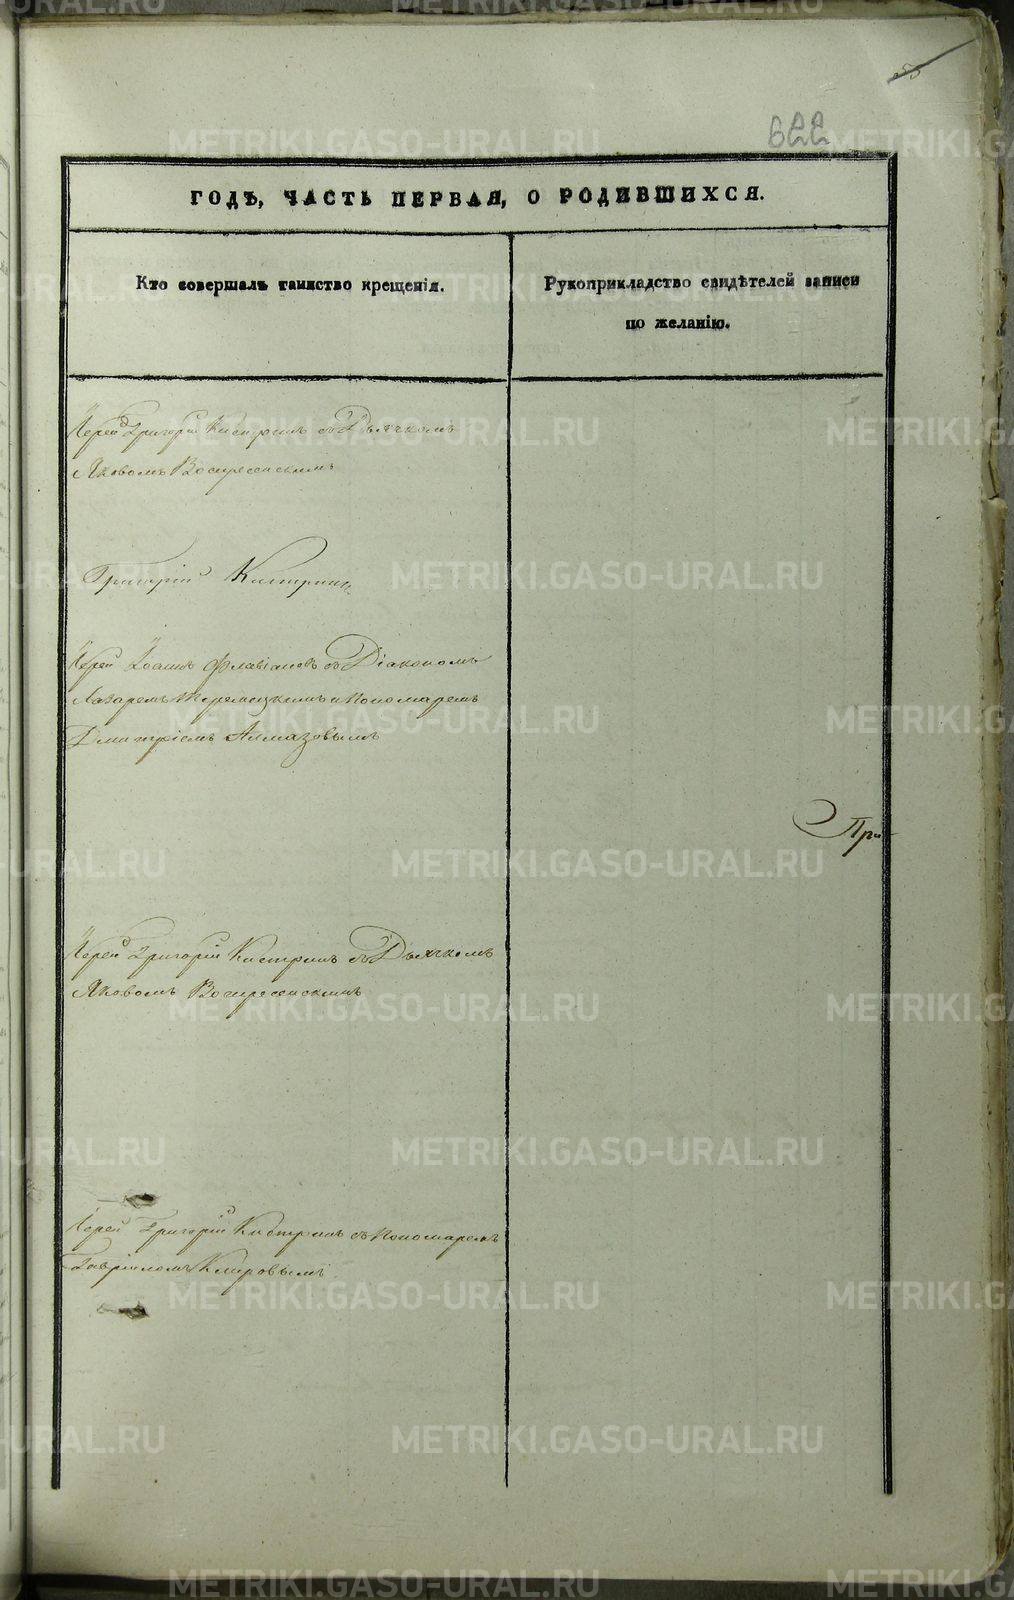 55
622
ГОДЪ, ЧАСТЬ ПЕРВАЯ, О РОДИВШИХСЯ.
Кто совершалъ таинство крещенія.
Рукоприкладство свидѣтелей записи
по желанію.
Іерей Григорій Кистринъ съ Дьячкомъ
Яковомъ Воскресенскимъ
Григорій Кистринъ
Іерей Іоаннъ Флавіановъ съ Діакономъ
Лазаремъ и Пономаремъ
Дмитріемъ Алмазовымъ
При
Іерей Григорій Кистринъ съ Дьячкомъ
Яковомъ Воскресенскимъ
Іерей Григорій Кистринъ съ Пономаремъ
Гавріиломъ Кировымъ
METRIKI.GASO-URAL.RU